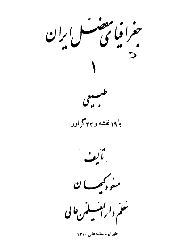 جغرافیای مفصل ایران
۱
طبیعی
با ۱۹ نقشه و ۲۳ گراور
تألیف
مسعود کیهان
معلم دارالمعلمین عالی